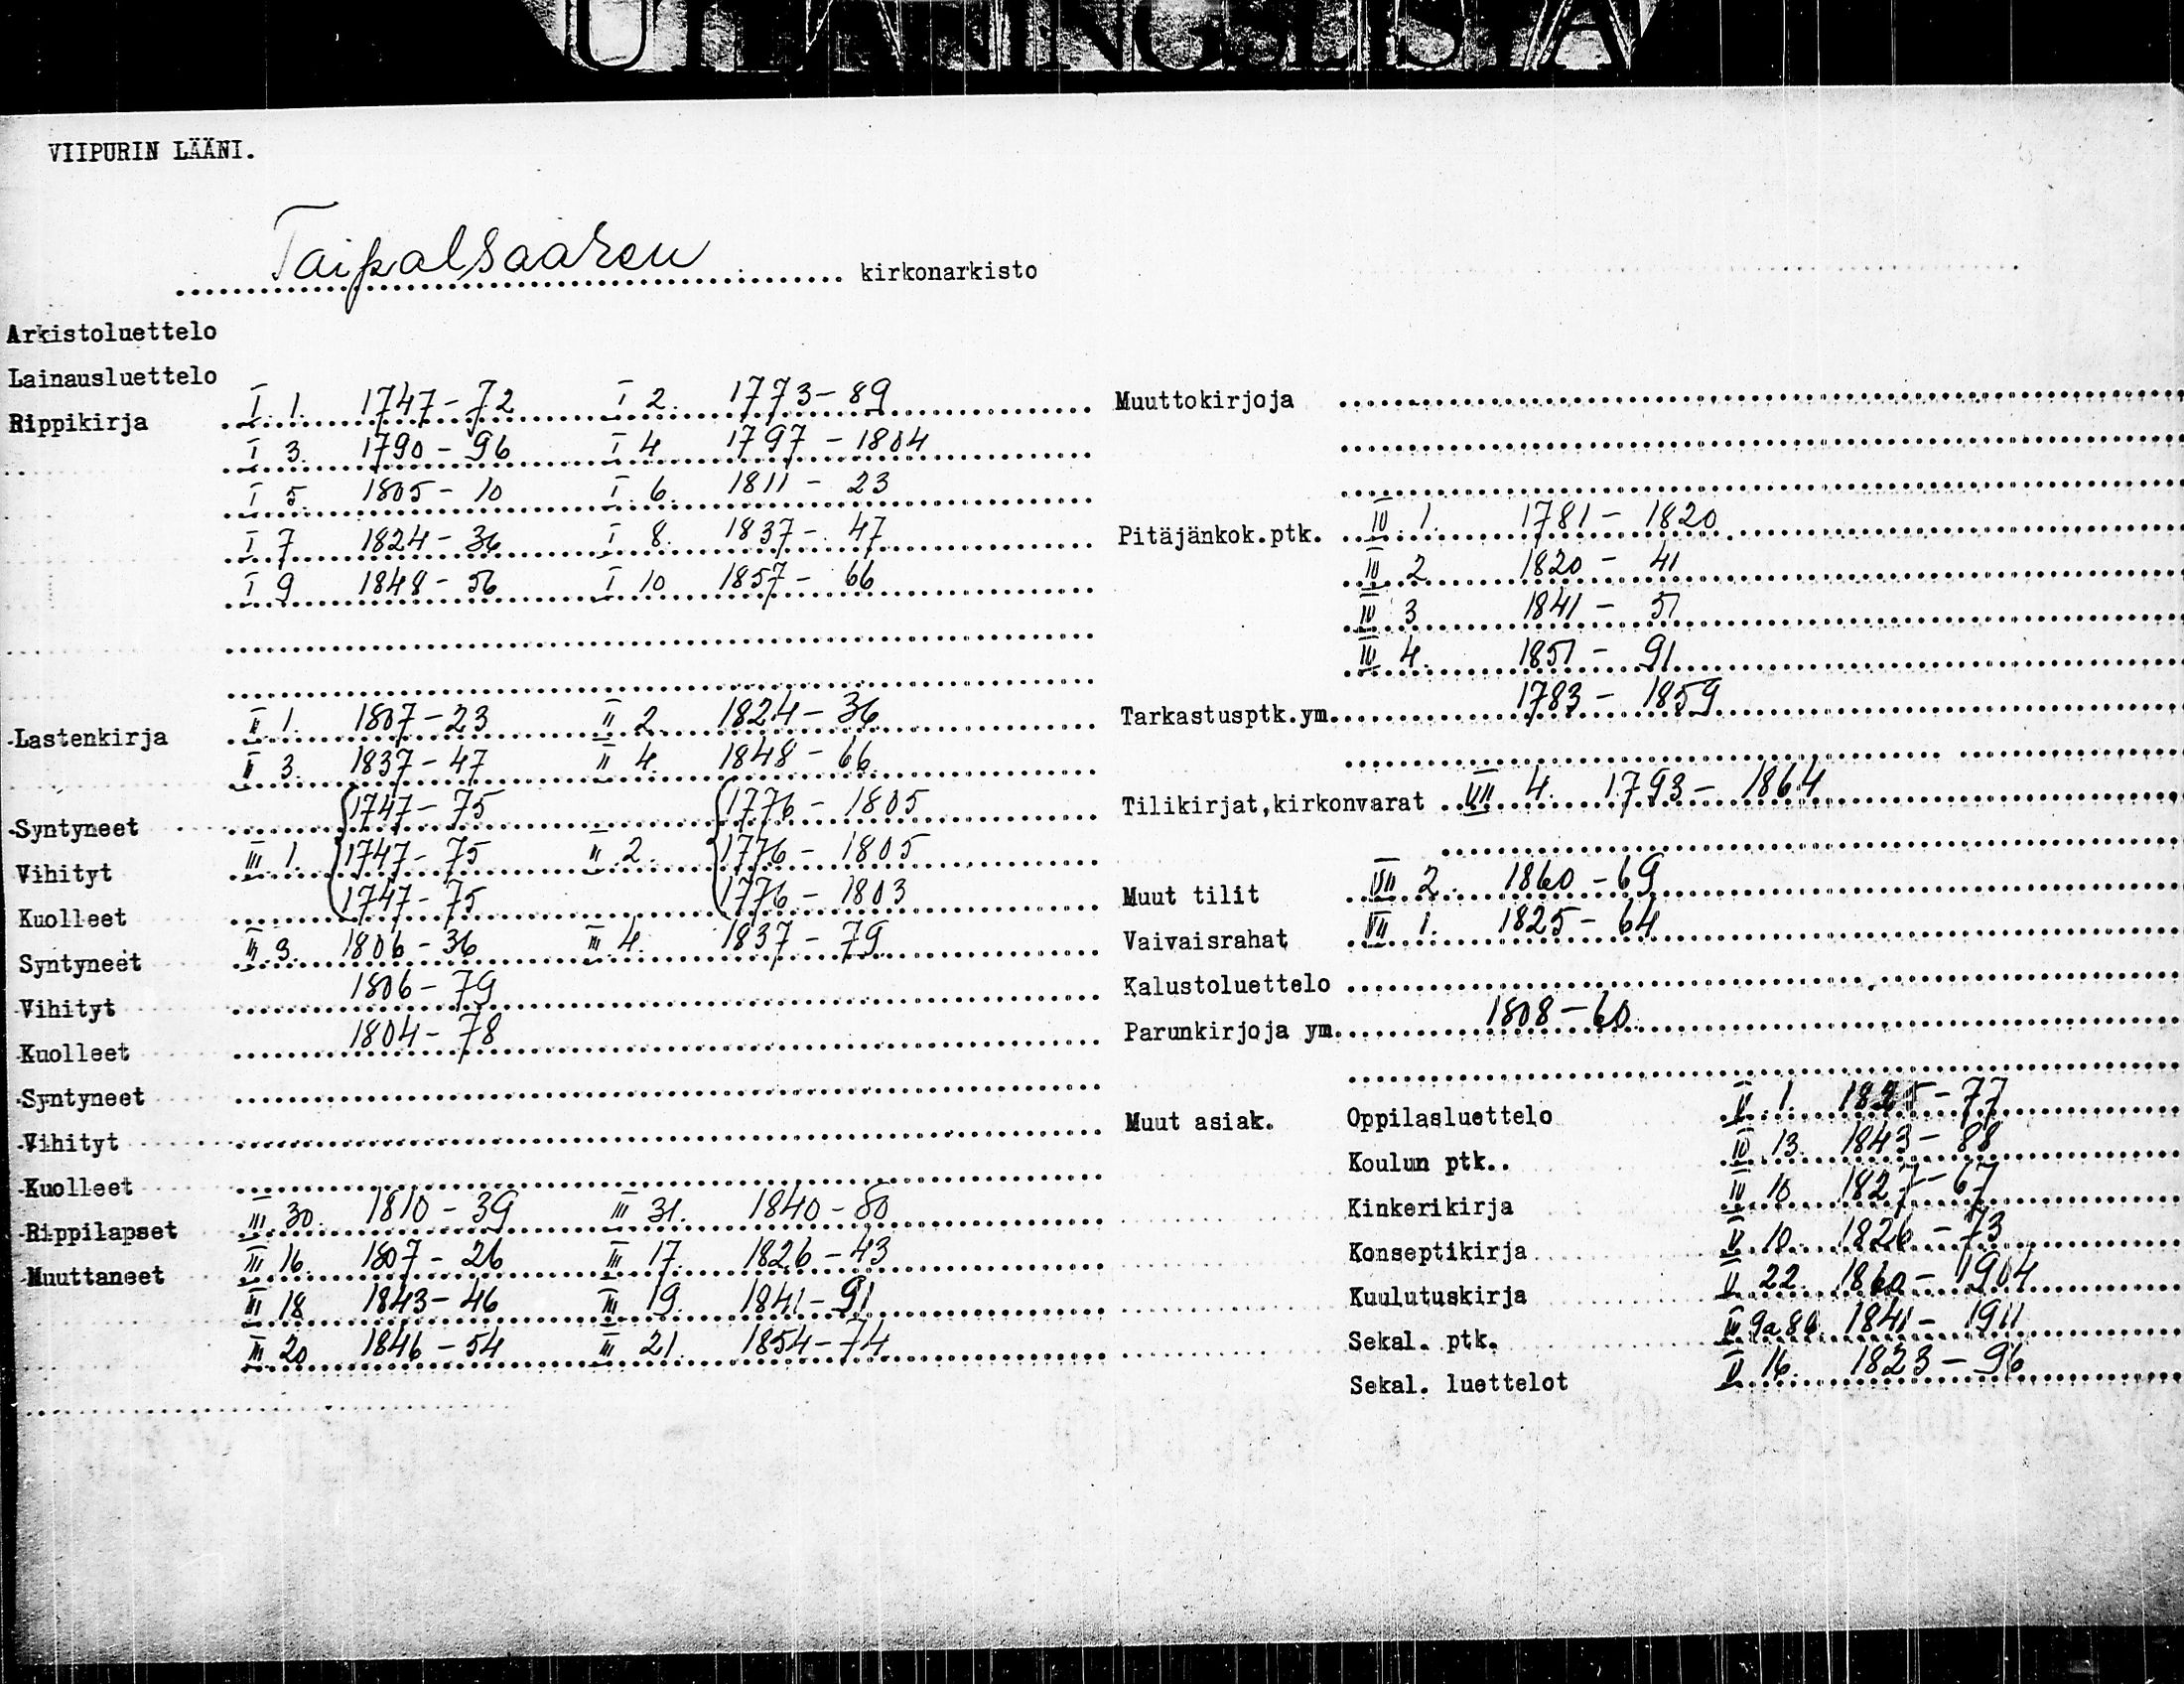 UTLÅNINGSLISTA
VIIPURIN LÄÄNI.
Taipalsaaren kirkonarkisto
Arkistoluettelo
Lainausluettelo
Rippikirja I. 1. 1747-72 I 2. 1773-89
I 3. 1790-96 I 4 1797-1804
I 5. 1805-10 I. 6. 1811-23
I 7 1824-36 I 8. 1837-47
I 9 1848-56 I 10 1857-66
Lastenkirja II 1. 1807-23 II 2. 1824-36
II 3. 1837-47 II 4. 1848-66
Syntyneet 1747-75 1776-1805
Vihityt III 1. 1747-75 II 2. 1776-1805
Kuolleet 1747-75 1776-1803
Syntyneet III 3. 1806-36 III 4. 1837-79
Vihityt 1806-79
Kuolleet 1804-78
Syntyneet
Vihityt
Kuolleet
Rippilapset III 30. 1810-39 III 31. 1840-80
Muuttaneet III 16. 1807-26 III 17. 1826-43
III 18 1843-46 III 19. 1841-91
III 20 1846-54 III 21. 1854-74
Muuttokirjoja
Pitäjänkok.ptk. IV. 1. 1781-1820
IV 2 1820-41
IV 3 1841-51
IV 4. 1851-91
Tarkastusptk.ym. 1783-1859
Tilikirjat,kirkonvarat VII 4. 1793-1864
Muut tilit VII 2. 1860-69
Vaivaisrahat VII 1. 1825-64
Kalustoluettelo
Parunkirjoja ym. 1808-60
Muut asiak. Oppilasluettelo V. 1. -77
Koulun ptk.. IV 13. 1843-88
Kinkerikirja IV 10. 1827-67
Konseptikirja V. 10. 1826-73
Kuulutuskirja V 22. 1860-1904
Sekal. ptk. 1841-1911
Sekal. luettelot V 16. 1823-96